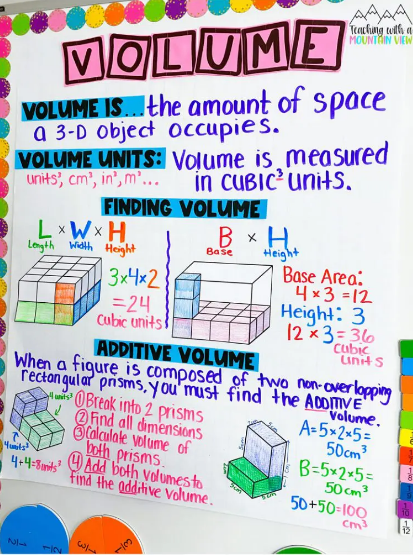 Teaching with a
MOUNTAIN VIEW
VOLUME
VOLUME IS... the amount of space
a 3-D object occupies.
VOLUME UNITS: Volume is measured
units³, cm³, in³, m³... in CUBIC³ UNITS.
FINDING VOLUME
L x W x H
Length Width Height
3x4x2
= 24
cubic units
B x H
Base Height
Base Area:
4 x 3 = 12
Height: 3
12 x 3 = 36
cubic
units
ADDITIVE VOLUME
When a figure is composed of two non-overlapping
rectangular prisms, you must find the ADDITIVE
volume.
4 units³
4 units³
4+4=8units³
① Break into 2 prisms
② Find all dimensions
③ Calculate volume of
both prisms.
④ Add both volumes to
find the additive volume.
A=5x2x5=
50cm³
B=5x2x5=
50cm³
50+50=100
cm³